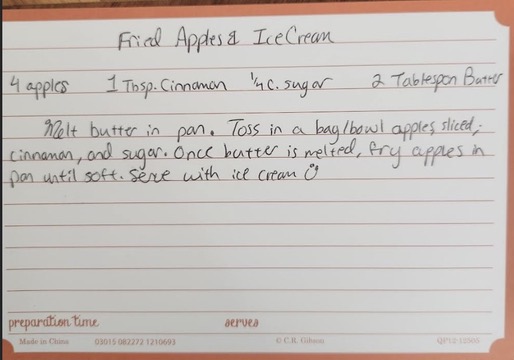 Fried Apples & Ice Cream
4 apples 1 Tbsp. Cinnamon 1/4 c. sugar 2 Tablespon Butter
Melt butter in pan. Toss in a bag/bowl apples sliced,
cinnamon, and sugar. Once butter is melted, fry apples in
pan until soft. Serve with ice cream
preparation time serves
Made in China 03015 082272 1210693 © C.R. Gibson QP12-12905